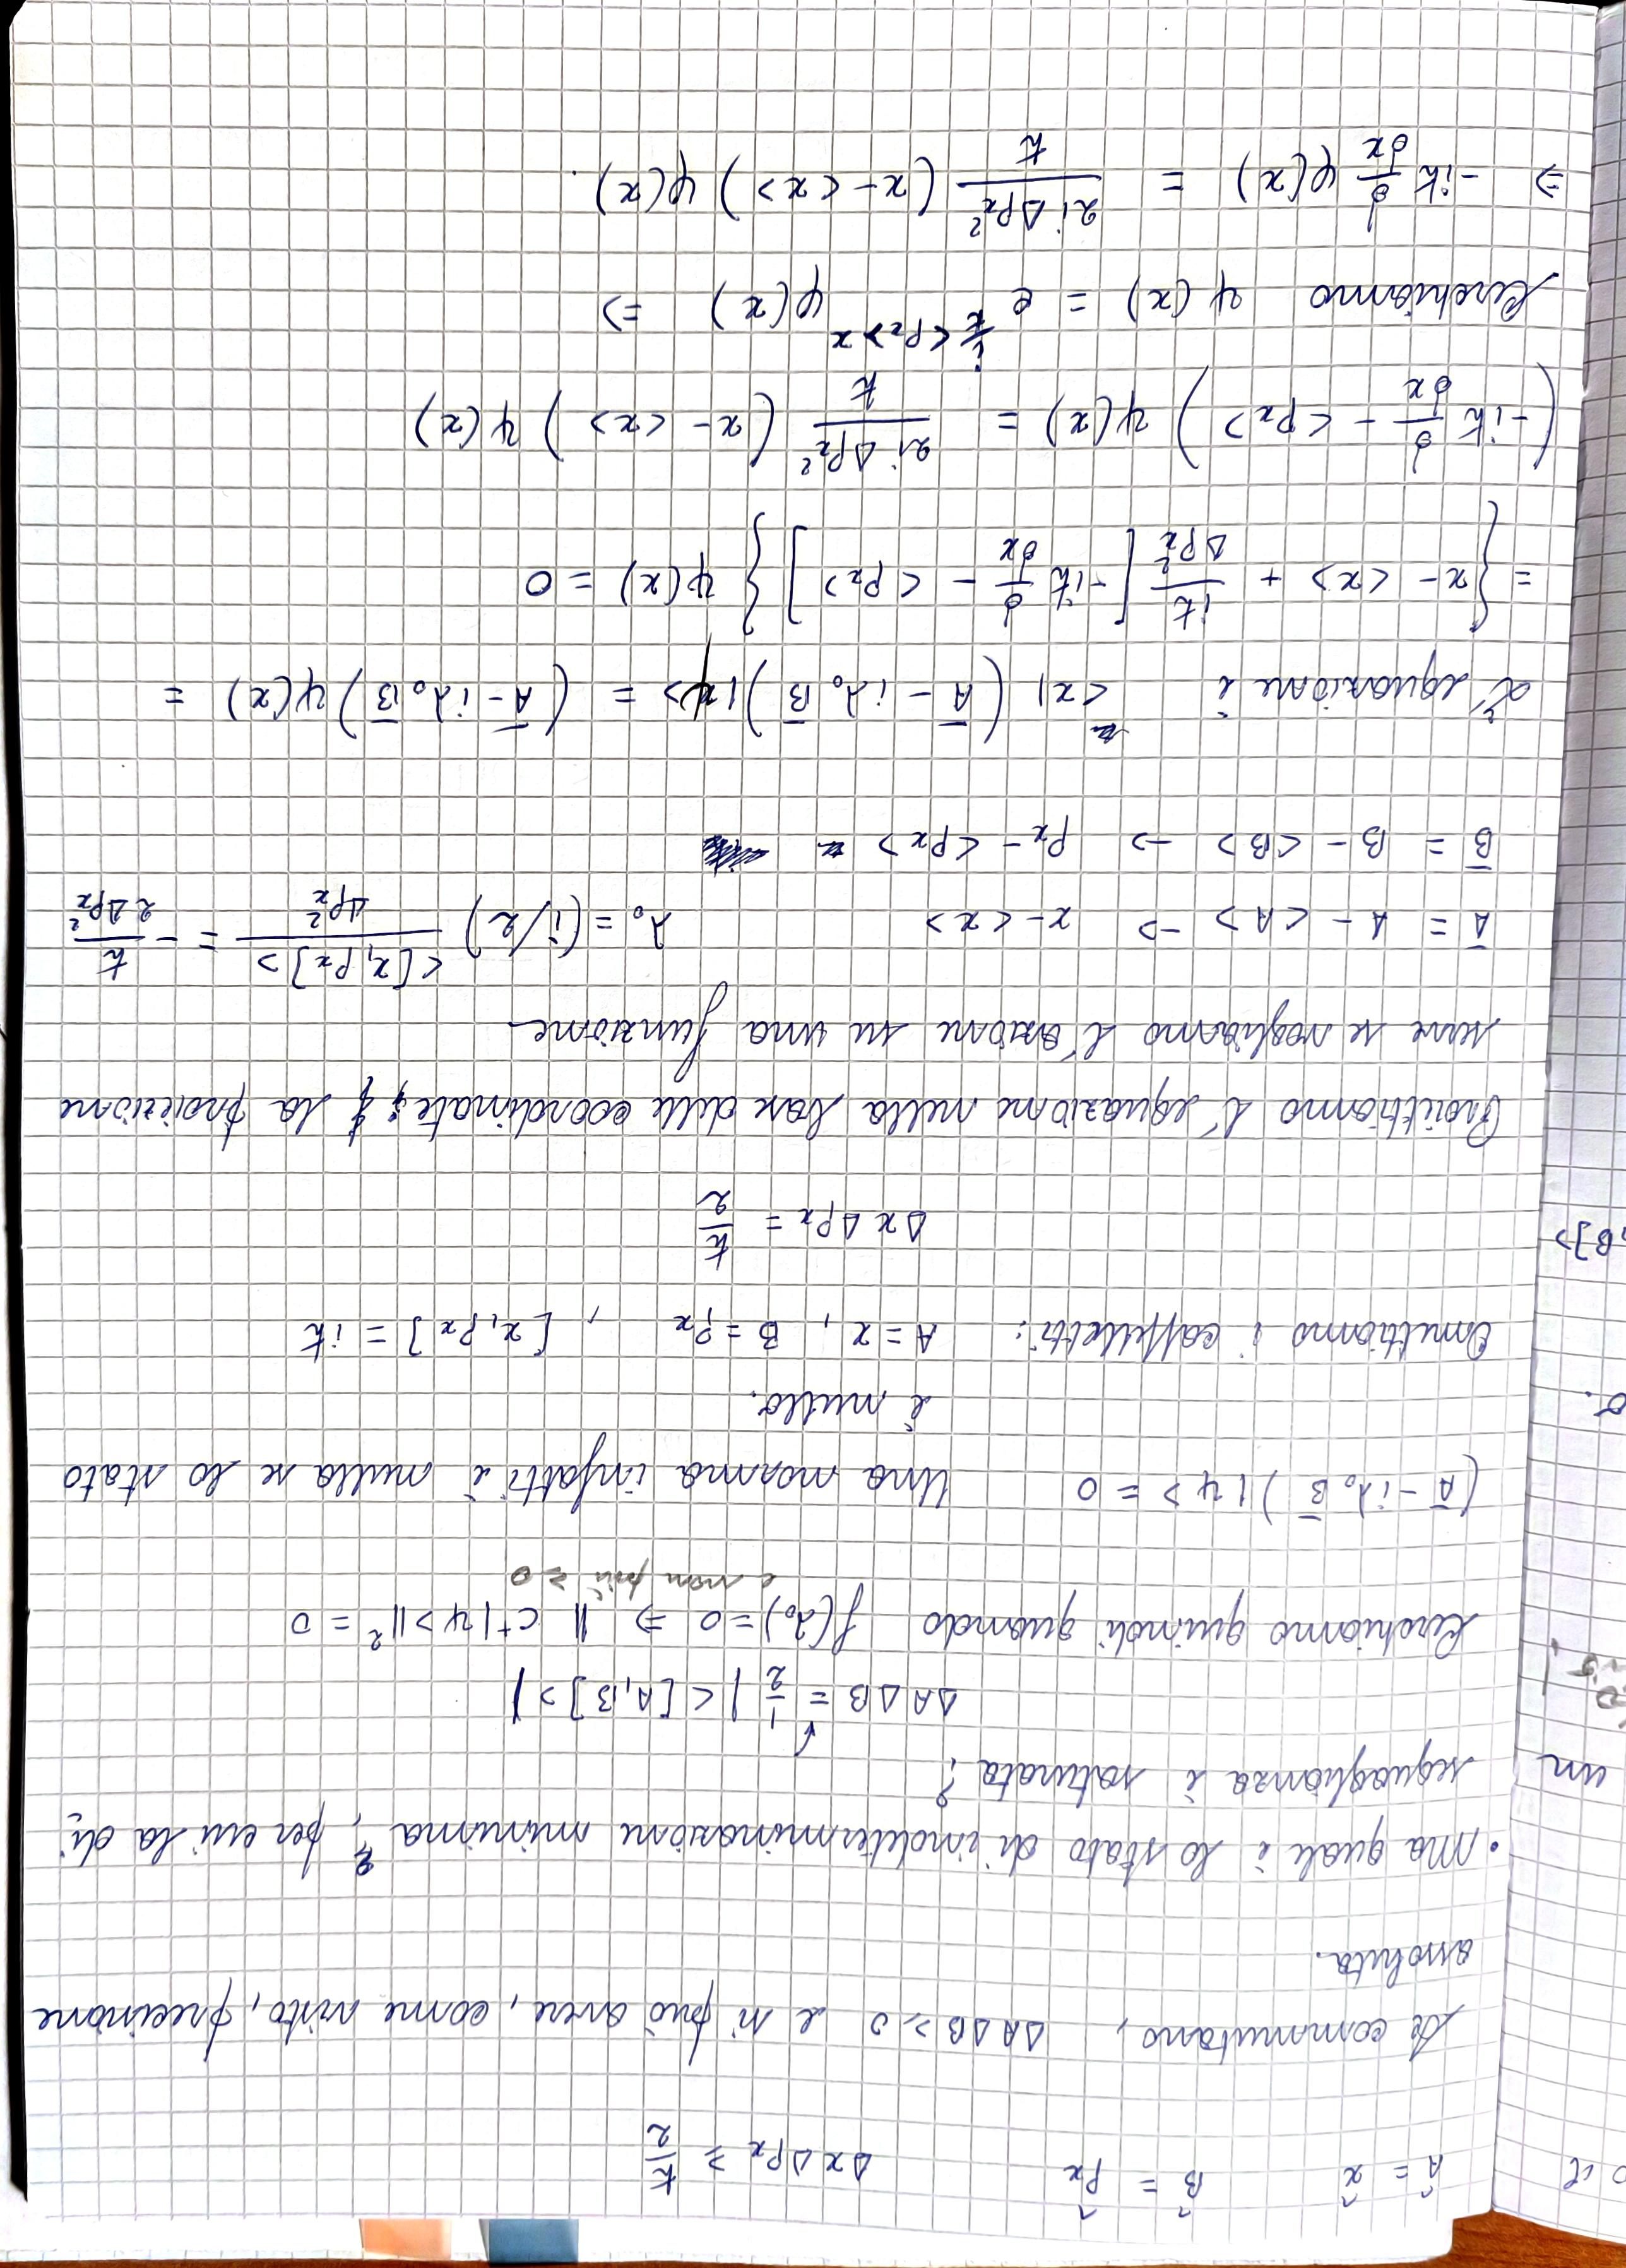 Â = x̂   B̂ = p̂x   Δx Δpx ≥ ħ/2
Se commutano, ΔA ΔB ≥ 0 e si può avere, come visto, precisione
assoluta.
• Ma quale è lo stato di indeterminazione minima, per cui la di-
seguaglianza è saturata?
ΔA ΔB = 1/2 |<[A,B]>|
Cerchiamo quindi quando f(λ₀) = 0 ⇒ || C†|ψ> ||² = 0
e non più ≥ 0
(Ā - iλ₀B̄)|ψ> = 0   Una norma infatti è nulla se lo stato
è nullo.
Omettiamo i cappelletti: A = x, B = px, [x, px] = iħ
Δx Δpx = ħ/2
Proiettiamo l'equazione nella base delle coordinate; la proiezione
serve se vogliamo l'azione su una funzione.
Ā = A - <A> → x - <x>   λ₀ = (i/2) <[x, px]>/Δpx² = - ħ/(2Δpx²)
B̄ = B - <B> → px - <px>
L'equazione è <x| (Ā - iλ₀B̄)|ψ> = (Ā - iλ₀B̄) ψ(x) =
= { x - <x> + iħ/Δpx² [ -iħ ∂/∂x - <px> ] } ψ(x) = 0
( -iħ ∂/∂x - <px> ) ψ(x) = 2iΔpx²/ħ (x - <x>) ψ(x)
Cerchiamo ψ(x) = e^(i/ħ <px> x) φ(x) ⇒
⇒ -iħ ∂/∂x φ(x) = 2iΔpx²/ħ (x - <x>) φ(x).
un
σ.
,B]>